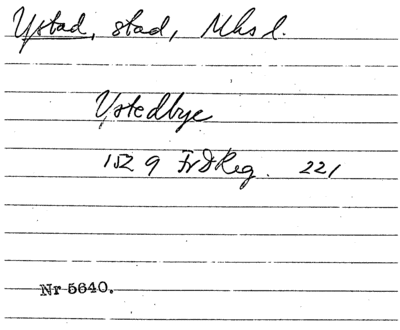 Ystad, stad, Mhs l.
Ystedbye
1529 FrdReg. 221
Nr 5640.